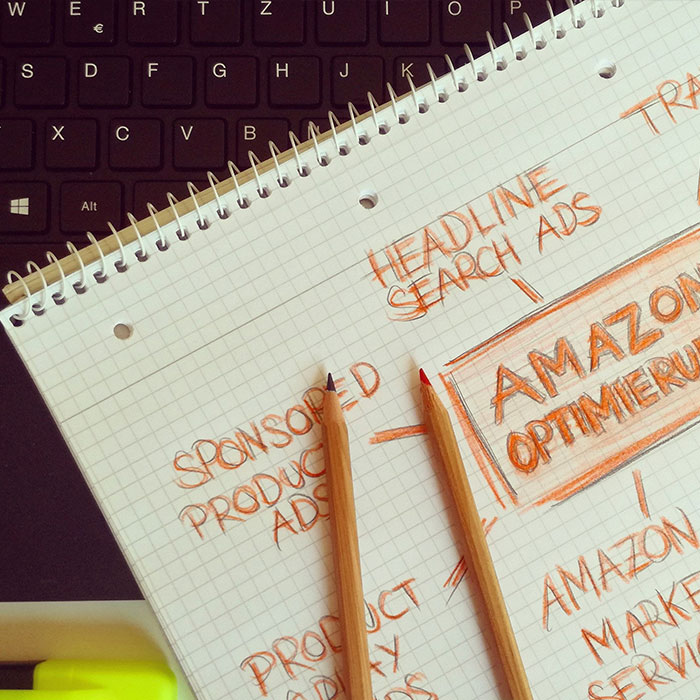 W E R T Z U I O P
€
S D F G H J K
X C V B
Alt
TRA
HEADLINE
SEARCH ADS
AMAZON
OPTIMIERU
SPONSORED
PRODUCT
ADS
AMAZON
MARKE
SERVIC
PRODUCT